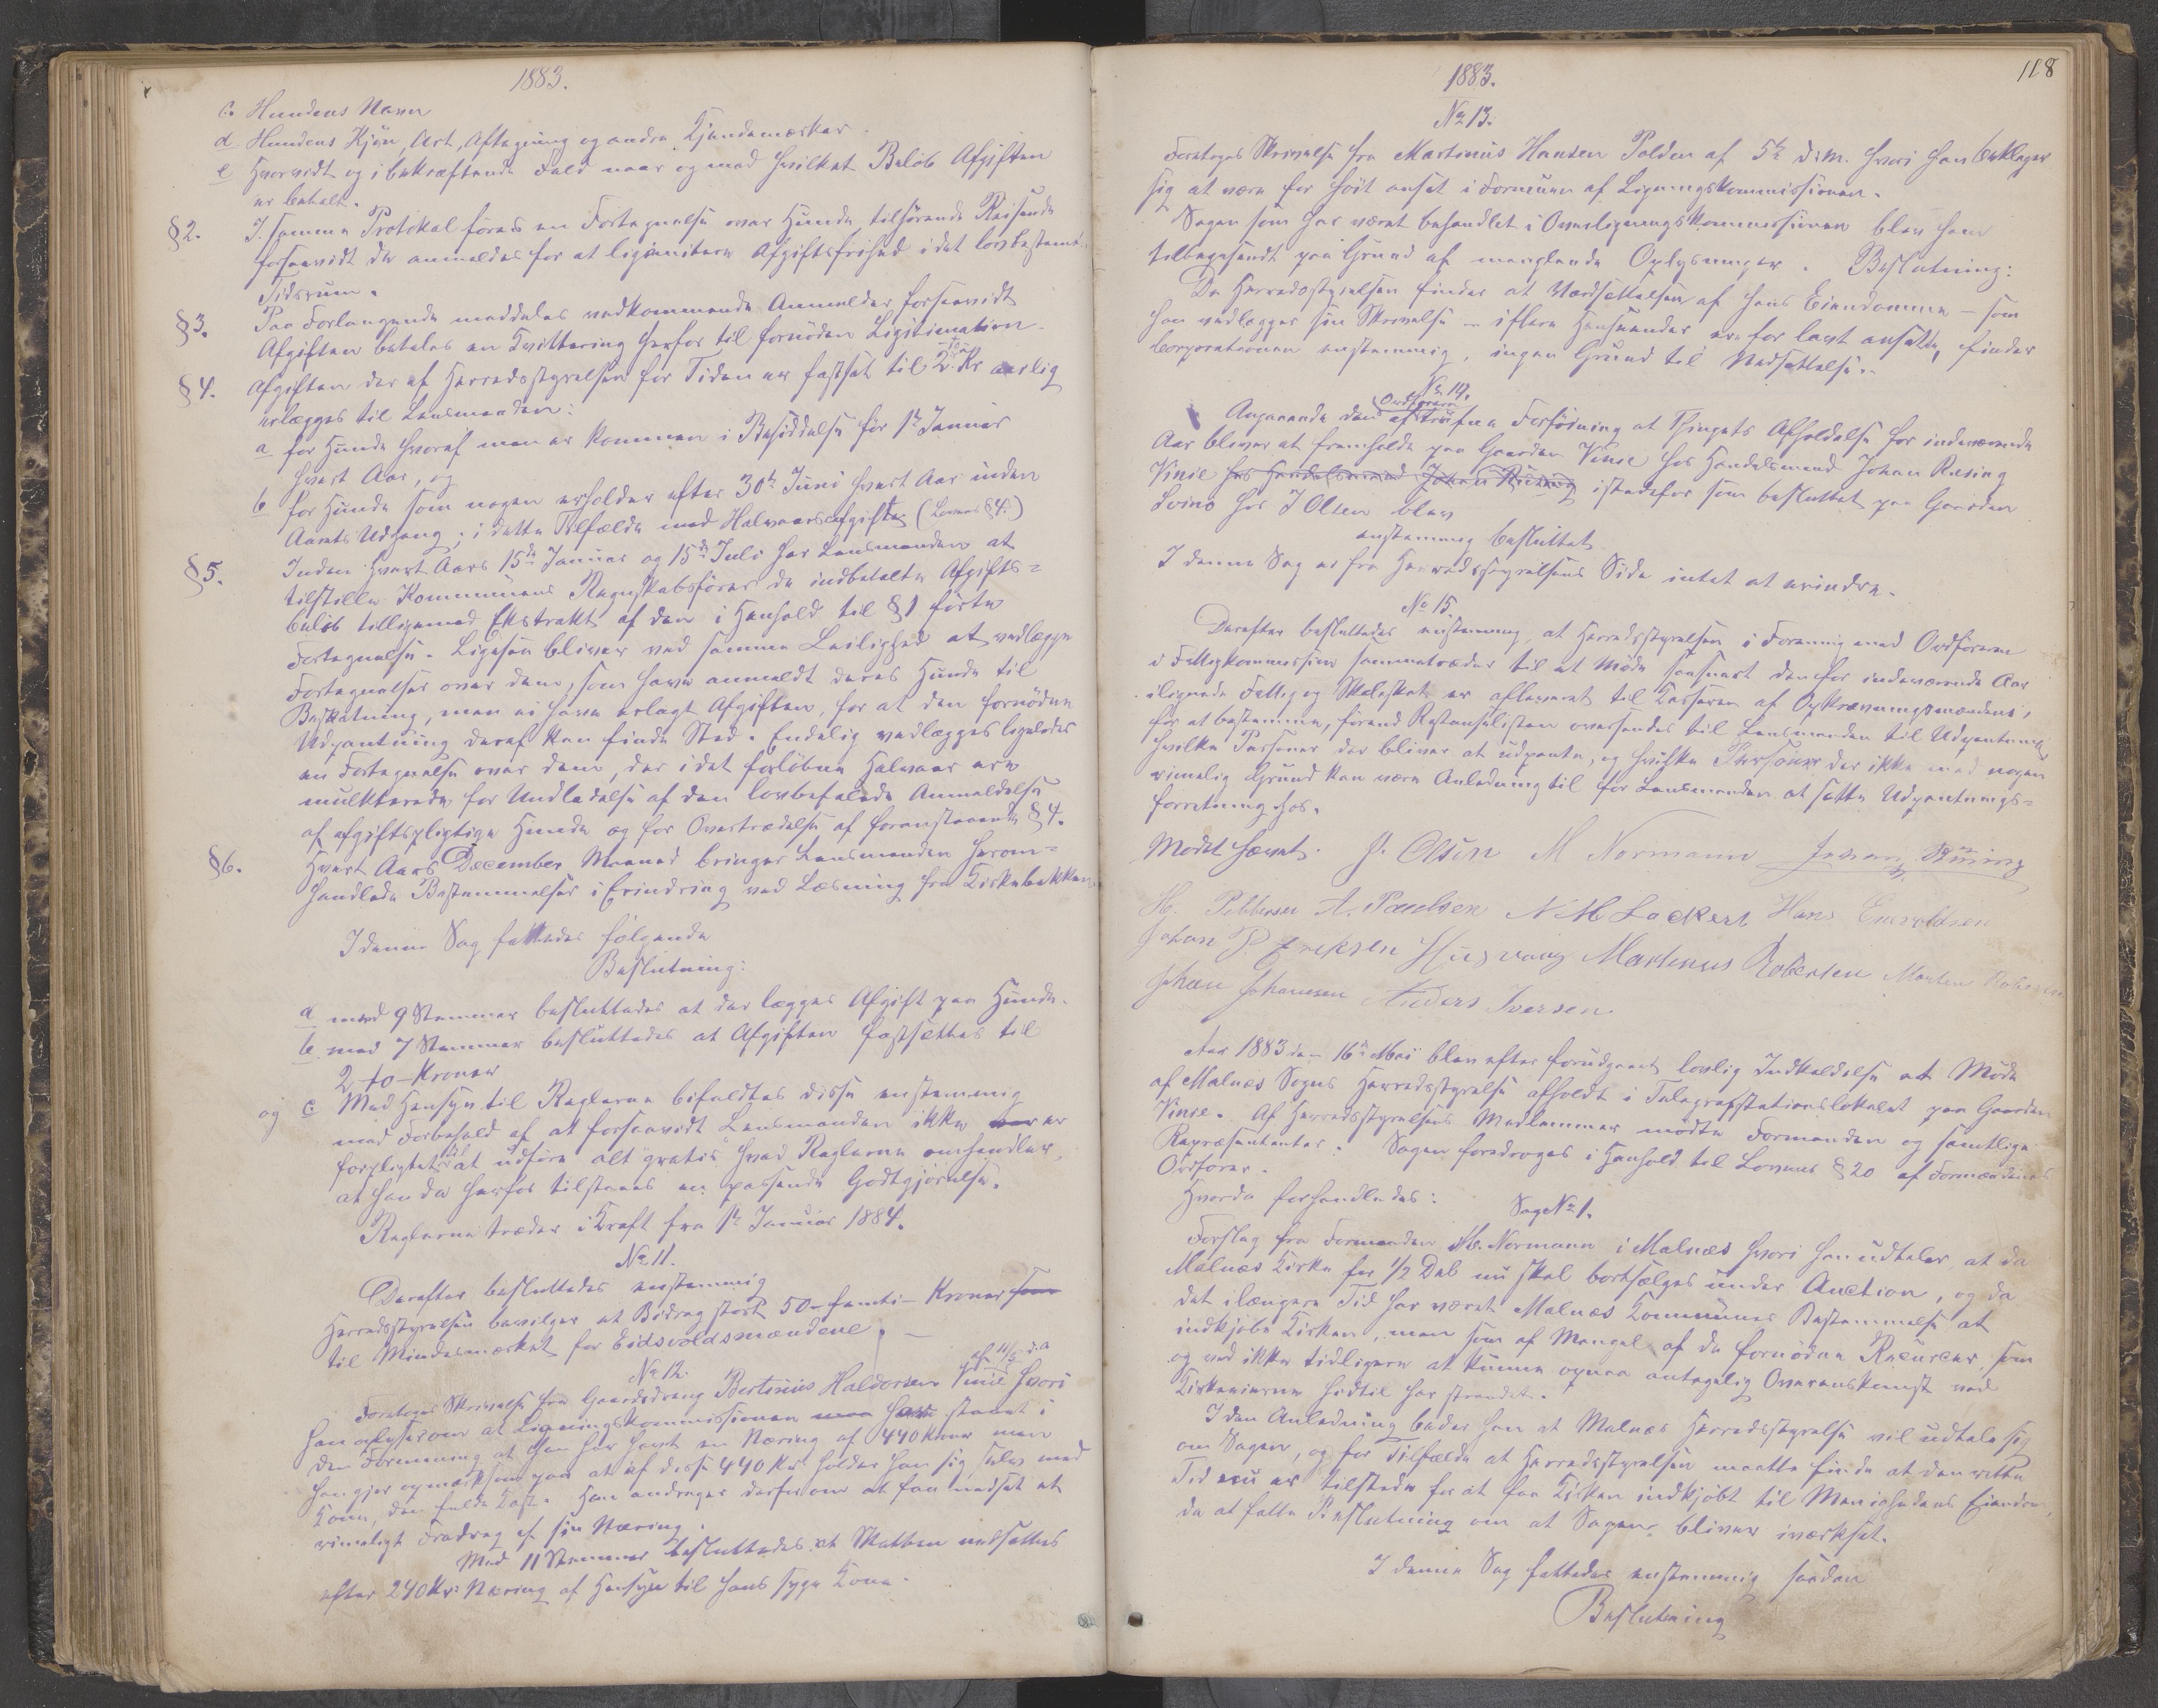 1883.
c. Hundens Navn
d Hundens Kjøn, Art, Aftegning og andre Kjendemærker.
e Hvorvidt og i bekræftende Fald naar og med hvilket Beløb Afgiften
er betalt.
§2. I samme Protokol føres en Fortegnelse over Hunde tilhørende Reisende
forsaavidt de anmeldes for at legimitere Afgiftsfrihed i det lovbestemte
Tidsrum.
§3. Paa Forlangende meddeles vedkommende Anmelder forsaavidt
Afgiften betales en Kvittering herfor til fornøden Legitimation.
§4. Afgiften der af Herredsstyrelsen for Tiden er fastsat til 2 -to- Kr aarlig
erlægges til Lensmanden:
a for Hunde hvoraf man er kommen i Besiddelse før 1ste Januar
hvert Aar, og
b for Hunde som nogen erholder efter 30te Juni hvert Aar inden
Aarets Udgang; i dette Tilfælde med Halvaarsafgifter (Lovens §4.)
§5. Inden hvert Aars 15de Januar og 15de Juli har Lensmanden at
tilstille Kommunens Regnskabsfører de indbetalte Afgifts=
beløb tilligemed Ekstrakt af den i Henhold til §1 førte
Fortegnelse. Ligesaa bliver ved samme Leilighed at vedlægge
Fortegnelser over dem, som have anmeldt deres Hunde til
Beskatning, men ei have erlagt Afgiften, for at den fornødne
Udpantning deraf kan finde Sted. Endelig vedlægges ligeledes
en Fortegnelse over dem, der i det forløbne Halvaar ere
mulkterede for Undladelse af den lovbefalede Anmeldelse
af afgiftspligtige Hunde og for Overtrædelse af foranstaaende §4.
§6. Hvert Aars December Maaned bringer Lensmanden herom=
handlede Bestemmelser i Erindring ved Læsning fra Kirkebakken.
I denne Sag fattedes følgende
Beslutning:
a med 9 Stemmer besluttedes at der lægges Afgift paa Hunde.
b med 7 Stemmer besluttedes at Afgiften fastsættes til
2 -to- Kroner
og c Med Hensyn til Reglerne bifaldtes disse enstemmig
med Forbehold af at forsaavidt Lensmanden ikke var er
forpligtet til at udføre alt gratis hvad Reglerne omhandler,
at han da herfor tilstaaes en passende Godtgjørelse.
Reglerne træder i Kraft fra 1ste Januar 1884.
No 11.
Derefter besluttedes enstemmig
Herredsstyrelsen bevilger et Bidrag stort 50 -femti- Kroner som
til Mindesmærket for Eidsvoldsmændene.
No 12.
Foretoges Skrivelse fra Gaardsdreng Bertinius Haldorsen Vinie af 11/5 d.A hvori
han oplyser om at Ligningskommissionen maa have staaet i
den Formening at han har havt en Næring af 440 Kroner men
han gjør opmærksom paa at af disse 440 Kr holder han sig selv med
Kone, den fulde Kost. Han andrager derfor om at faa nedsat et
rimeligt Fradrag af sin Næring.
Med 11 Stemmer besluttedes at Skatten nedsættes
efter 240 Kr: Næring af Hensyn til hans syge Kone.
118
1883.
No 13.
Foretoges Skrivelse fra Martinus Hansen Polden af 5te d.M. hvori han beklager
sig at være for høit ansat i Formuen af Ligningskommissionen.
Sagen som har været behandlet i Overligningskommissionen blev ham
tilbagesendt paa Grund af manglende Oplysninger. Beslutning:
Da Herredsstyrelsen finder at Værdsættelsen af hans Eiendomme - som
han vedlægger sin Skrivelse - i flere Henseender ere for lavt ansatte, finder
Corporationen enstemmig, ingen Grund til Nedsættelse.
No 14.
Angaaende den af Ordføreren trufne Forføining at Thingets Afholdelse for indeværende
Aar bliver at fremholde paa Gaarden Vinie hos Handelsmand Johan Rusing
Vinie hos Handelsmand Johan Rusing istedetfor som besluttet paa Gaarden
Svinø hos I Olsen blev
enstemmig besluttet
I denne Sag er fra Herredsstyrelsens Side intet at erindre.
No 15.
Derefter besluttedes enstemmig, at Herredsstyrelsen i Forening med Ordføreren
i Fattigkommission sammentræder til et Møde saasnart den for indeværende Aar
ilignede Fattig og Skoleskat er afleveret til Kasseren af Opkrævningsmændene,
for at bestemme, førend Restanselisten oversendes til Lensmanden til Udpantning
hvilke Personer der bliver at udpante, og hvilke Personer der ikke med nogen
rimelig Grund kan være Anledning til for Lensmanden at sætte Udpantnings=
forretning hos.
Mødet hævet. J. Olsen M Normann Johan Rusing
H. Pebbersen A. Paulsen N M Lockert Hans Enevoldsen
Johan P. Eriksen Husvaag Martinus Robertsen Morten
Johan Johannesen Anders Iversen
Aar 1883 den 16de Mai blev efter forudgaaet lovlig Indkaldelse et Møde
af Malnæs Sogns Herredsstyrelse afholdt i Telegrafstationslokalet paa Gaarden
Vinie. Af Herredsstyrelsens Medlemmer mødte Formanden og samtlige
Repræsentanter. Sagen foredroges i Henhold til Lovens §20 af Formændenes
Ordfører.
Hvorda forhandledes:
Sag No 1.
Forslag fra Formanden M. Normann i Malnæs hvori han udtaler, at da
Malnæs Kirke for 1/2 Del nu skal bortsælges under Auction, og da
det i længere Tid har været Malnæs Kommunes Bestemmelse at
indkjøbe Kirken, men som af Mangel af de fornødne Recurcer, som
og ved ikke tidligere at kunne opnaa antagelig Overenskomst med
Kirkeeierne hidtil har strandet.
I den Anledning beder han at Malnæs Herredsstyrelse vil udtale sig
om Sagen, og for Tilfælde at Herredsstyrelsen maatte finde at den rette
Tid nu er tilstede for at faa Kirken indkjøbt til Menighedens Eiendom,
da at fatte Beslutning om at Sagen bliver iværksat.
I denne Sag fattedes enstemmig saadan
Beslutning